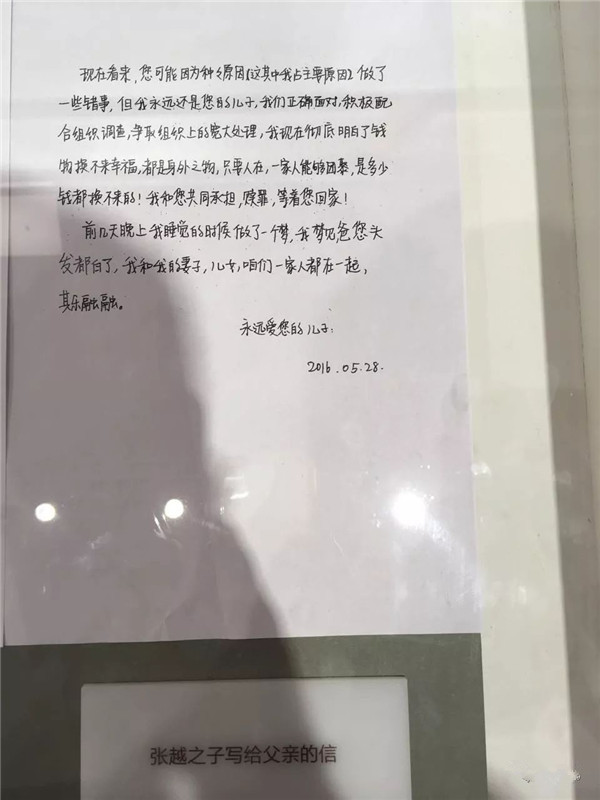 现在看来，您可能因为种々原因（这其中我占主要原因）做了
一些错事，但我永远还是您的儿子，我们正确面对，积极配
合组织调查，争取组织上的宽大处理，我现在彻底明白了钱
物换不来幸福，都是身外之物，只要人在，一家人能够团聚，是多少
钱都换不来的！我和您共同承担，赎罪，等着您回家！
前几天晚上我睡觉的时候做了一个梦，我梦见爸您头
发都白了，我和我的妻子，儿女，咱们一家人都在一起，
其乐融融。
永远爱您的儿子：
2016.05.28.
张越之子写给父亲的信